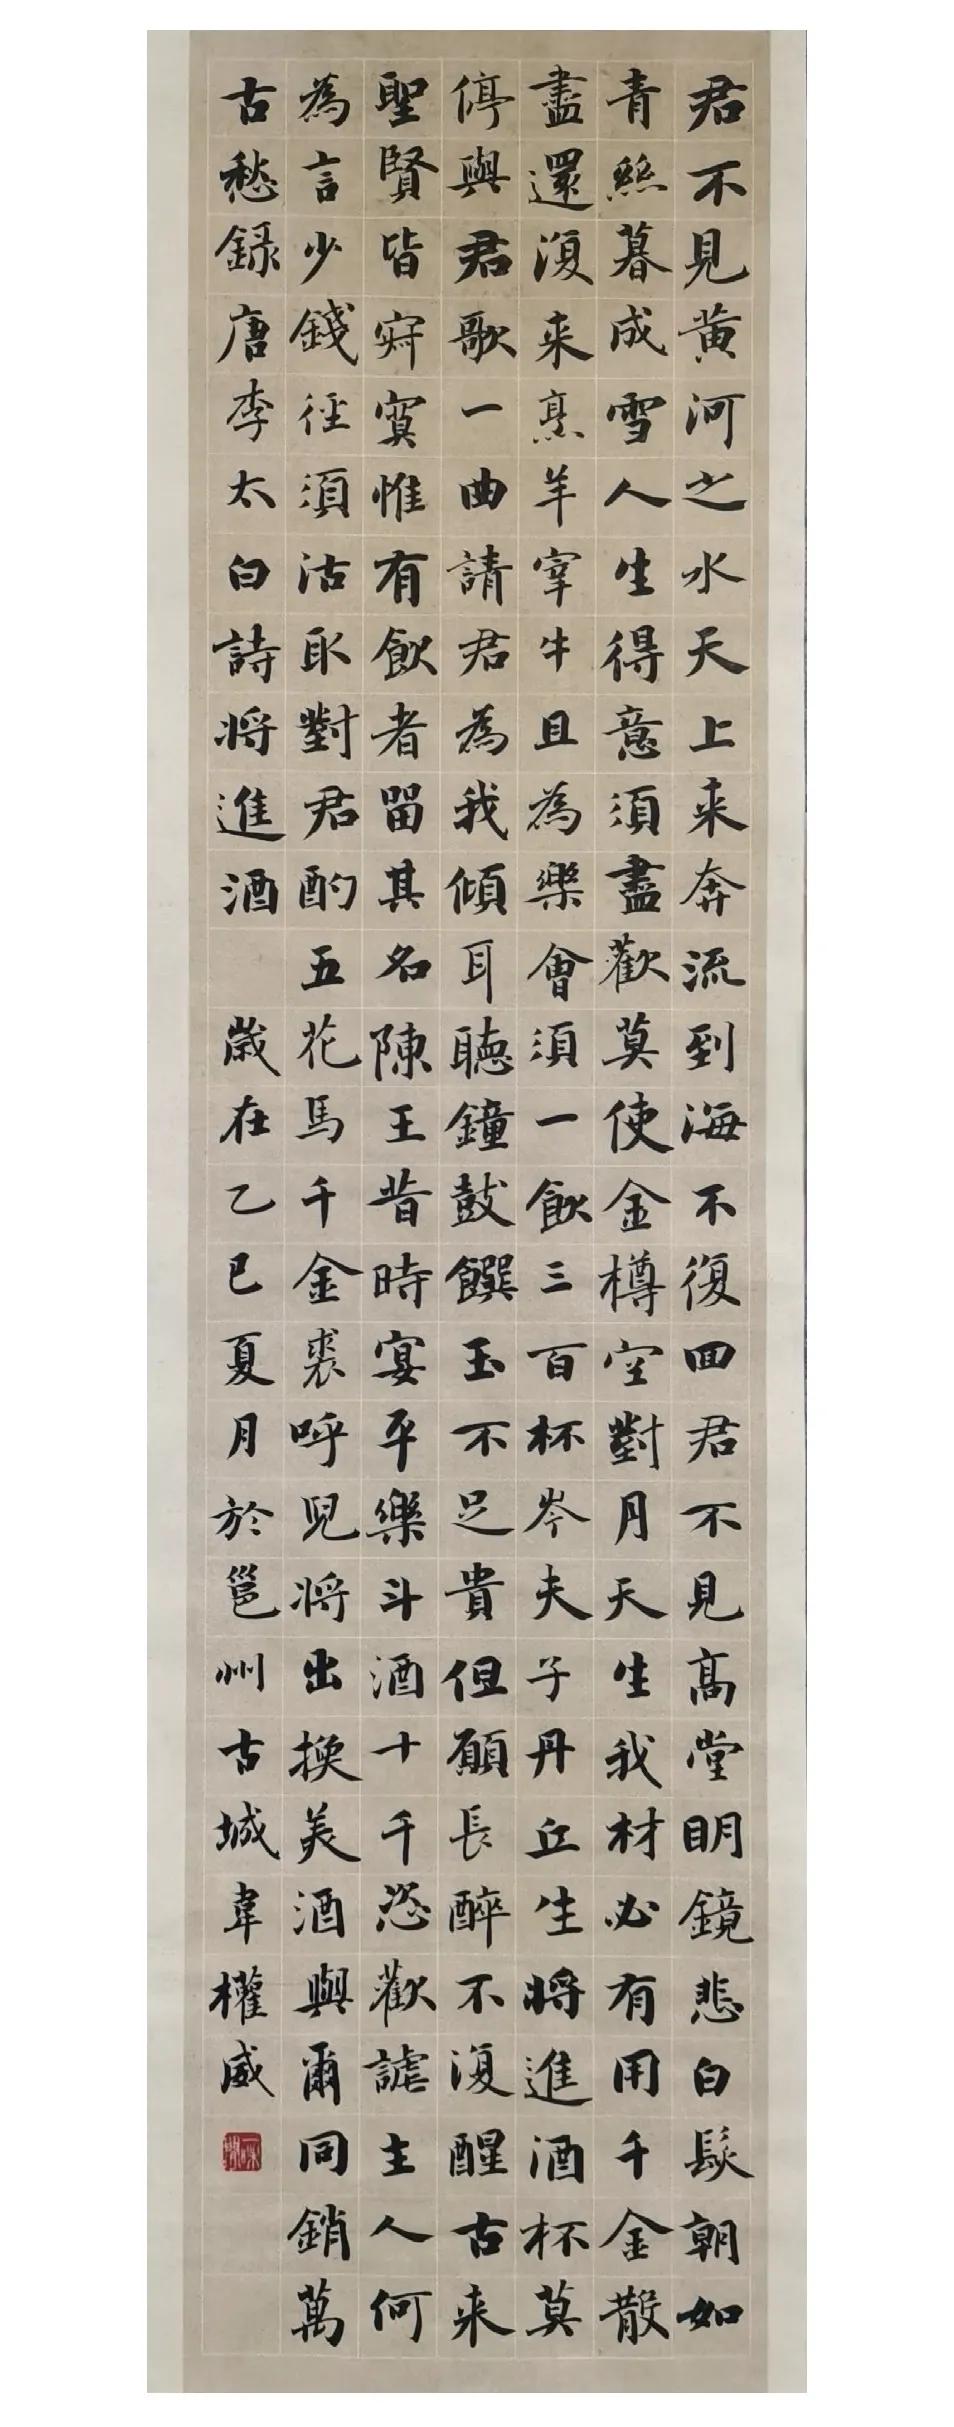 君不見黃河之水天上来奔流到海不復回君不見高堂明鏡悲白髮朝如
青絲暮成雪人生得意須盡歡莫使金樽空對月天生我材必有用千金散
盡還復来烹羊宰牛且為樂會須一飲三百杯岑夫子丹丘生將進酒杯莫
停與君歌一曲請君為我傾耳聽鐘鼓饌玉不足貴但願長醉不復醒古来
聖賢皆寂寞惟有飲者留其名陳王昔時宴平樂斗酒十千恣歡謔主人何
為言少錢徑須沽取對君酌五花馬千金裘呼兒將出換美酒與爾同銷萬
古愁録唐李太白詩將進酒 歲在乙巳夏月於邕州古城韋權威